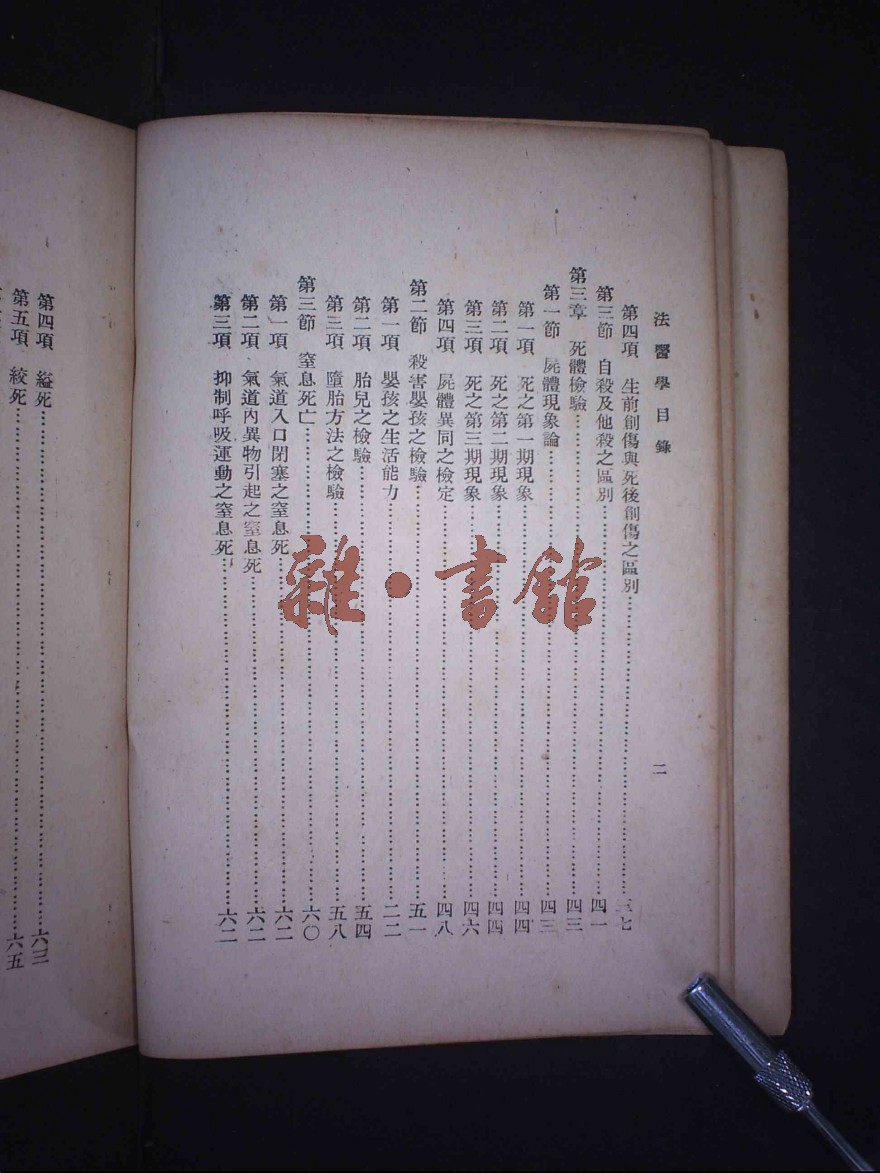 法醫學目錄
二
第四項 生前創傷與死後創傷之區別……三七
第三節 自殺及他殺之區別……四一
第三章 死體檢驗……四三
第一節 屍體現象論……四三
第一項 死之第一期現象……四四
第二項 死之第二期現象……四四
第三項 死之第三期現象……四六
第四項 屍體異同之檢定……四八
第二節 殺害嬰孩之檢驗……五一
第一項 嬰孩之生活能力……二二
第二項 胎兒之檢驗……五四
第三項 墮胎方法之檢驗……五八
第三節 窒息死亡……六〇
第一項 氣道入口閉塞之窒息死……六二
第二項 氣道內異物引起之窒息死……六二
第三項 抑制呼吸運動之窒息死……六二
第四項 縊死……六三
第五項 絞死……六五
雜·書館